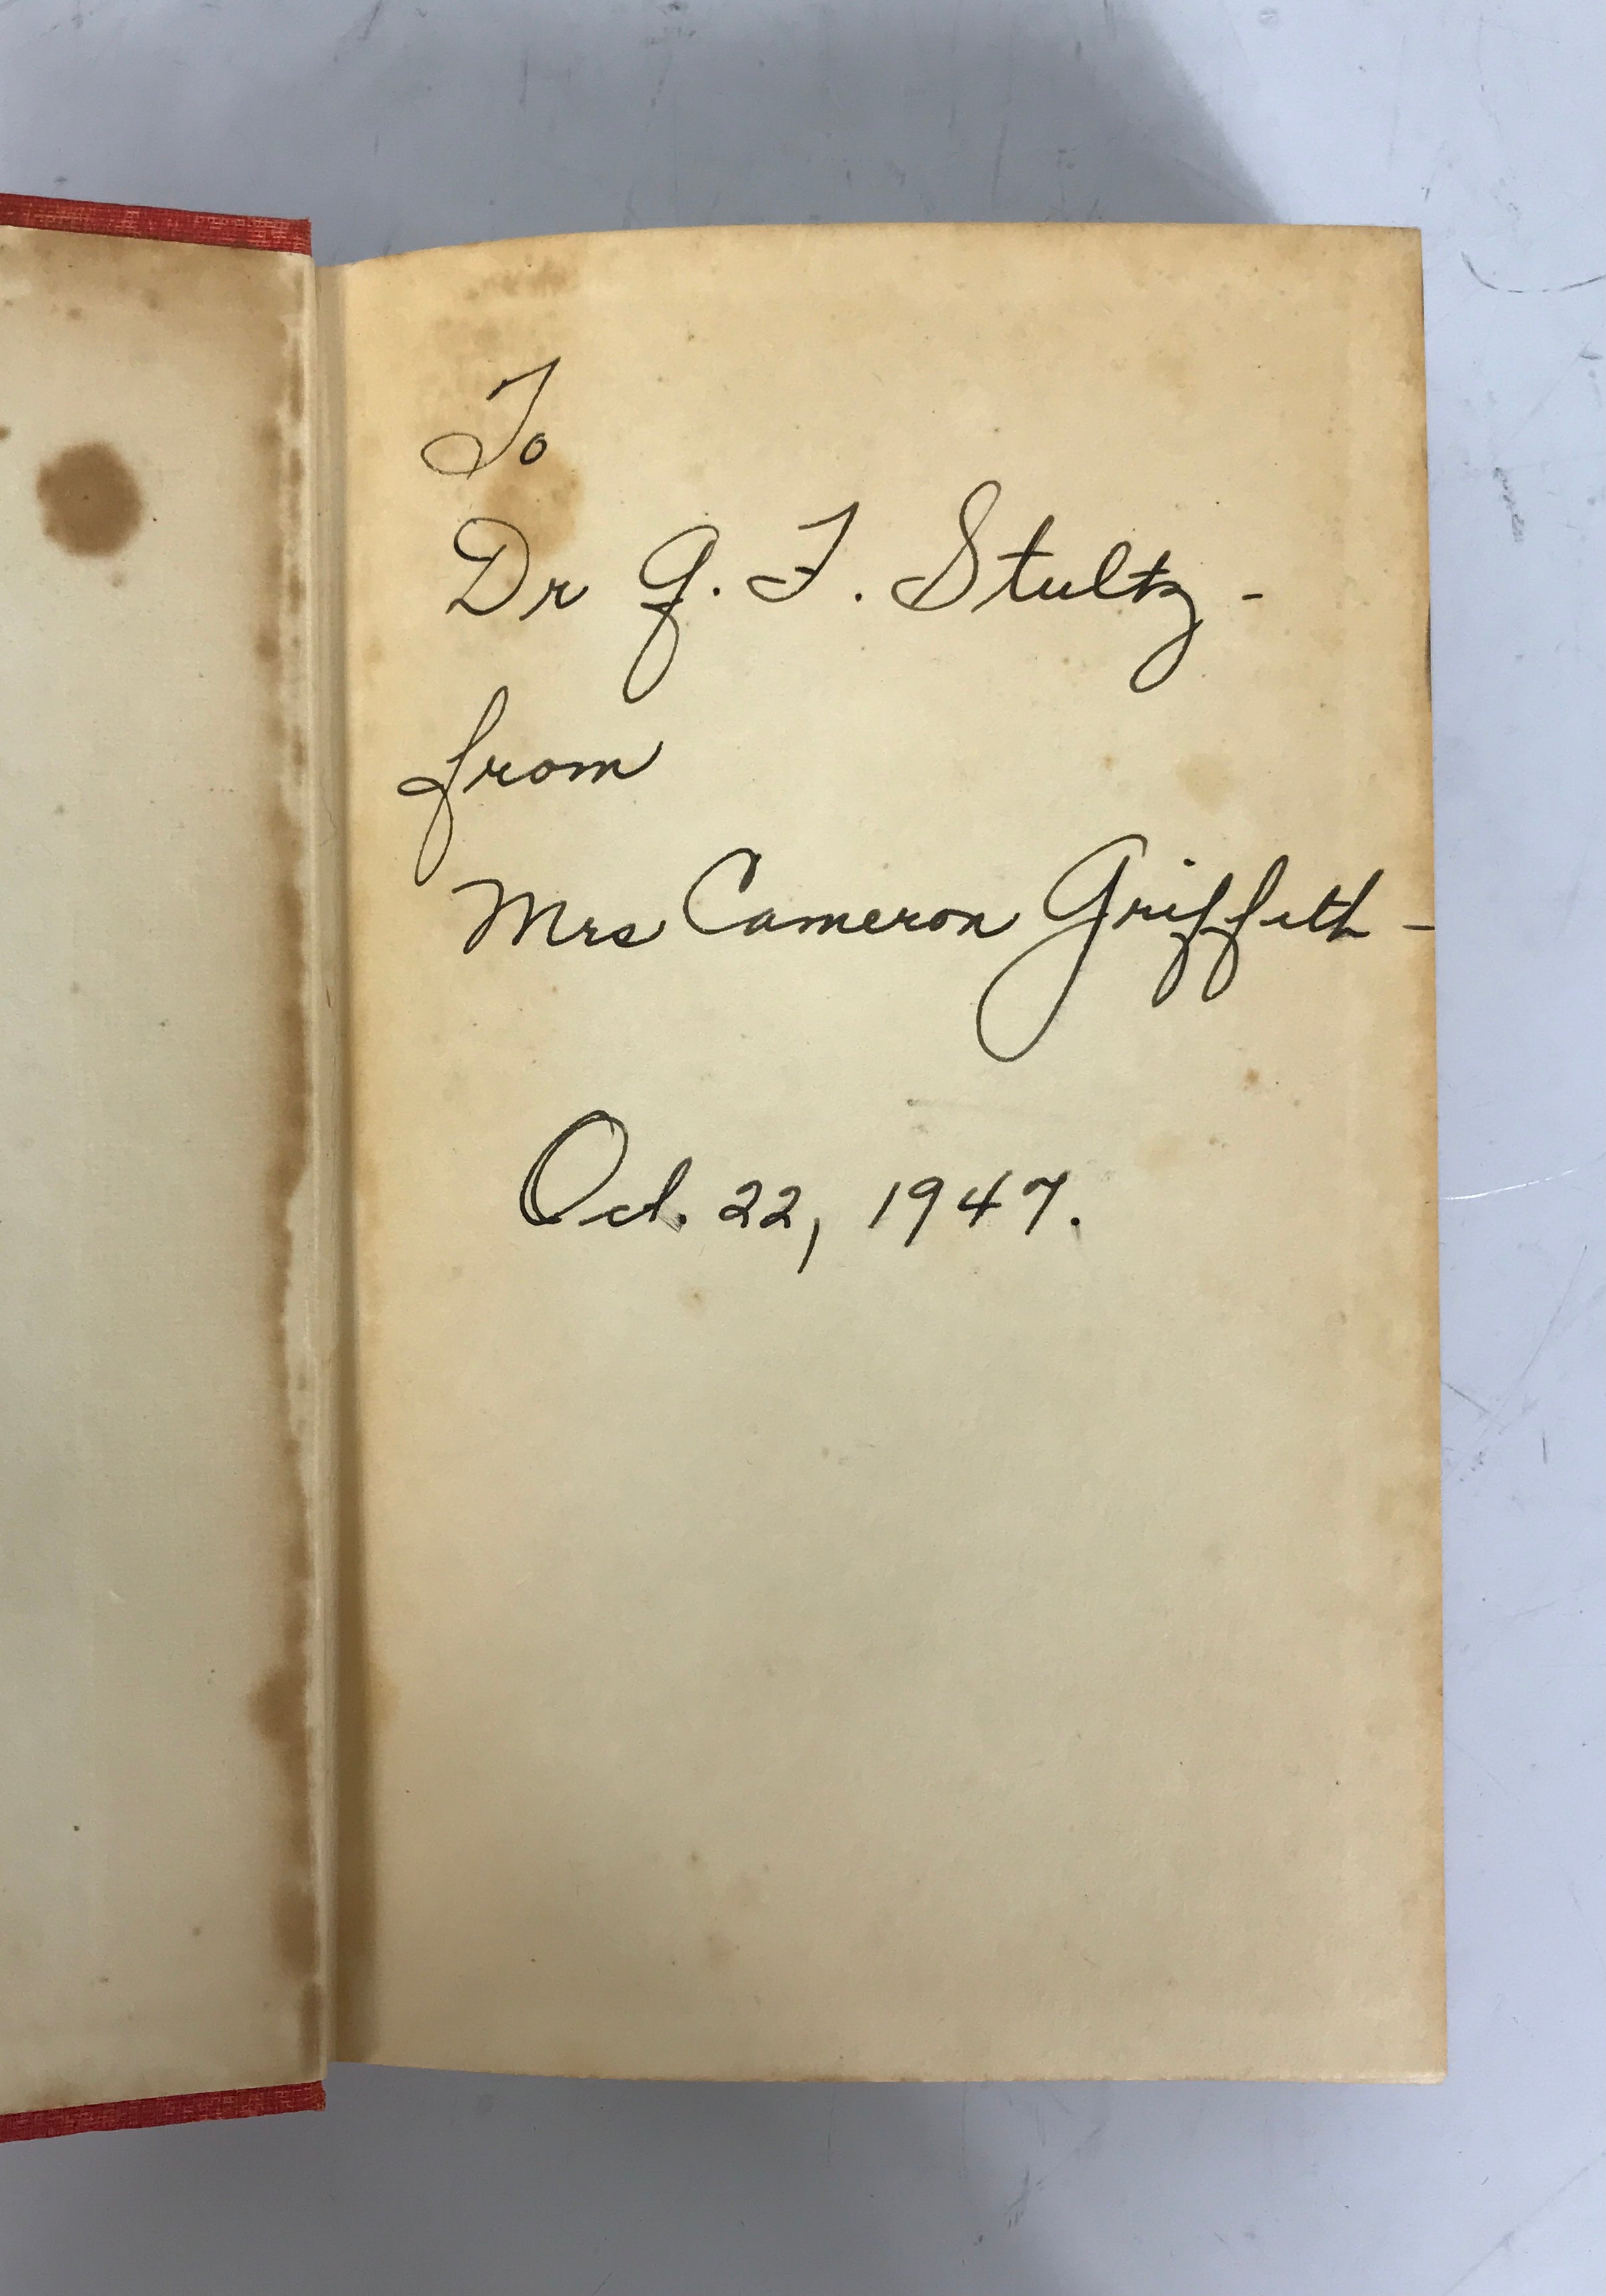 To
Dr G. F. Stultz -
from
Mrs Cameron Griffeth -
Oct. 22, 1947.